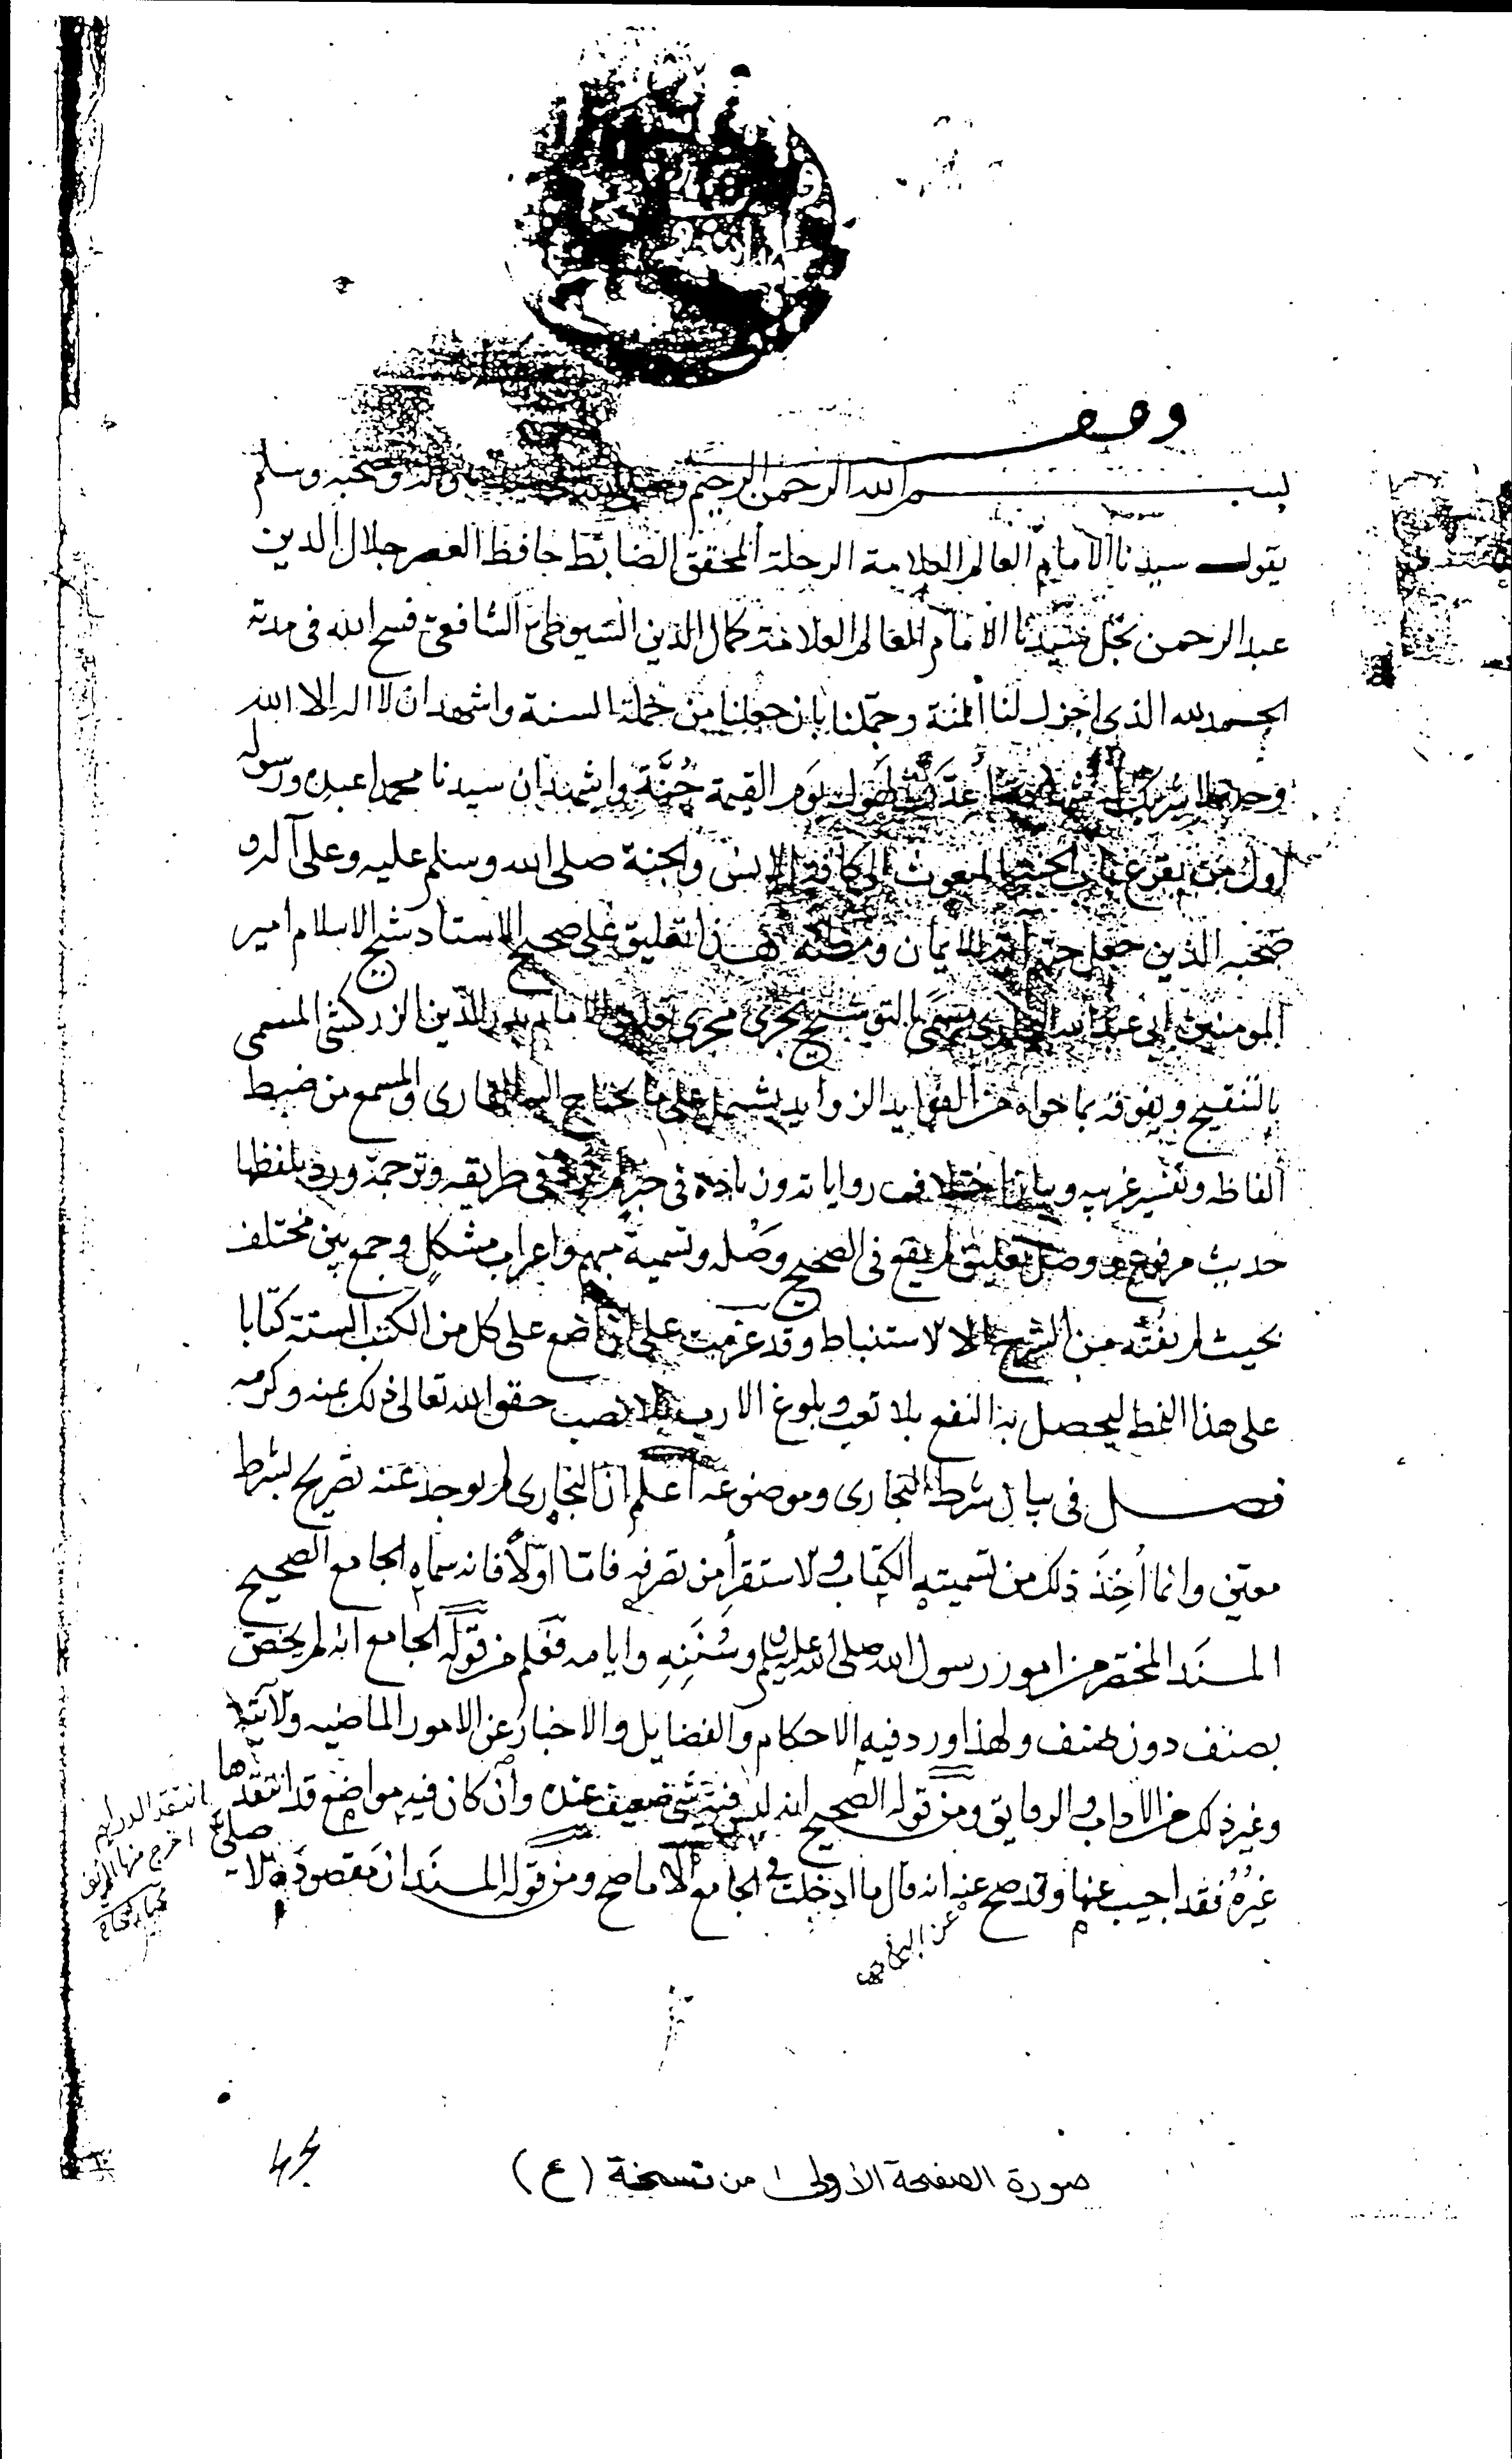 وقف
بسم الله الرحمن الرحيم وصلى الله على وآله وصحبه وسلم
يقول سيدنا الامام العالم العلامة الرحلة المحقق الضابط حافظ العصر جلال الدين
عبد الرحمن نجل سيدنا الامام العالم العلامة كمال الدين السيوطي الشافعي فسح الله في مدته
الحمد لله الذي اجزل لنا المنة وجملنا بان جعلنا من حملة السنة واشهد ان لا اله الا الله
وحده لا شريك له اعددت لهول يوم القيمة جُنَّة واشهد ان سيدنا محمدا عبده ورسوله
اول من يقرع باب الجنة المبعوث الى كافة الانس والجنة صلى الله وسلم عليه وعلى آله و
صحبه الذين جعل حبهم آية الايمان ومظنه هذا تعليق على صحيح الاستاد شيخ الاسلام امير
المومنين ابي عبد الله البخاري يسمى بالتوشيح يجري مجرى تعليق الامام بدر الدين الزركشي المسمى
بالتنقيح ويفوقه بما حواه من الفوايد الزوايد يشتمل على ما يحتاج اليه القاري والمسمع من ضبط
الفاظه وتفسير غريبه وبيان اختلاف رواياته وزيادة في خبر لم ترد في طريقه وترجمة ورد بلفظها
حديث مرفوع ووصل تعليق لم يقع في الصحيح وَصْله وتسمية مبهم واعراب مشكل وجمع بين مختلف
بحيث لم يفته من الشرح الا الاستنباط وقد عزمت على ان اضع على كل من الكتب الستة كتابا
على هذا النمط ليحصل به النفع بلا تعب وبلوغ الارب بلا نصب حقق الله تعالى ذلك بمنه وكرمه
فصل في بيان شرط البخاري وموضوعه اعلم ان البخاري لم يوجد عنه تصريح بشرط
معين وانما أُخِذَ ذلك من تسميته الكتاب والاستقرأ من تصرفه فاما اوّلاً فانه سماه الجامع الصحيح
المسنَد المختصر من امور رسول الله صلى الله عليه وسلم وسُنَنِهِ وايامه فعلم من قوله الجامع انه لم يخص
بصنف دون صنف ولهذا اورد فيه الاحكام والفضايل والاخبار عن الامور الماضيه والآتية
وغير ذلك من الاداب والرقايق ومن قوله الصحيح انه ليس فيه شي ضعيف عنده وان كان فيه مواضع قد انتقدها
غيرُهُ فقد اجيب عنها وقد صح عنه انه قال ما ادخلت في الجامع الا ما صح ومن قوله المسنَد ان مقصوده الا
صورة الصفحة الأولى من نسخة (ع)